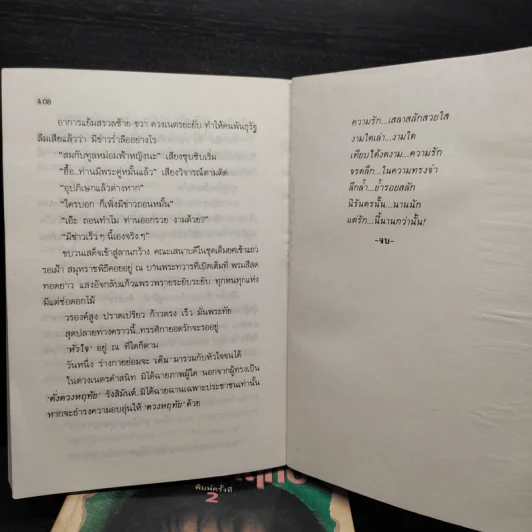 408
อาการแย้มสรวลซ้าย-ขวา ดวงเนตรระยับ ทำให้คนพันธุรัฐ
ลืมเสียแล้วว่า มีข่าวร่ำลืออย่างไร
"สมกับทูลหม่อมฟ้าหญิงนะ" เสียงซุบซิบเริ่ม
"ฮื้อ..ท่านมีพระคู่หมั้นแล้ว" เสียงวิจารณ์ตามติด
"อุปภิเษกแล้วต่างหาก"
"ใครบอก ก็เพิ่งมีข่าวถอนหมั้น"
"เอ๊ะ ถอนทำไม ท่านออกรวย งามด้วย?"
"มีข่าวเร็วๆ นี้เองจริงๆ"
ขบวนเสด็จเข้าสู่ลานกว้าง คณะเสนาบดีในชุดเต็มยศเข้าแถว
รอเฝ้า สมุหราชพิธีคอยอยู่ ณ บานพระทวารที่เปิดเต็มที่ พรมสีสด
ทอดยาว แสงอัจกลับแก้วแพรวพรายระยิบระยับ ทุกหนทุกแห่ง
มีแต่ช่อดอกไม้
วรองค์สูง ปราดเปรียว ก้าวตรง เร็ว มั่นพระทัย
สุดปลายทางคราวนี้..ทรรศิกายอดรักจะรออยู่
'หัวใจ' อยู่ ณ ที่ใดก็ตาม
วันหนึ่ง ร่างกายย่อมจะ 'เดิน' มารวมกับหัวใจจนได้
ในดวงเนตรดำสนิท มิได้ฉายภาพผู้ใด นอกจากผู้ทรงเป็น
'ดั่งดวงหฤทัย' รังสิมันต์..มิได้ฉายฉานเฉพาะประชาชนเท่านั้น
หากจะธำรงความอบอุ่นให้ 'ดวงหฤทัย' ด้วย
ความรัก...เสลาสลักสวยใส
งามใดเล่า...งามใด
เทียบได้งดงาม...ความรัก
จรดลึก...ในความทรงจำ
ลึกล้ำ...ย้ำรอยสลัก
นิรันดรนั้น...นานนัก
แต่รัก...นี้นานกว่านั้น!
-จบ-
พิมพ์ครั้งที่
2